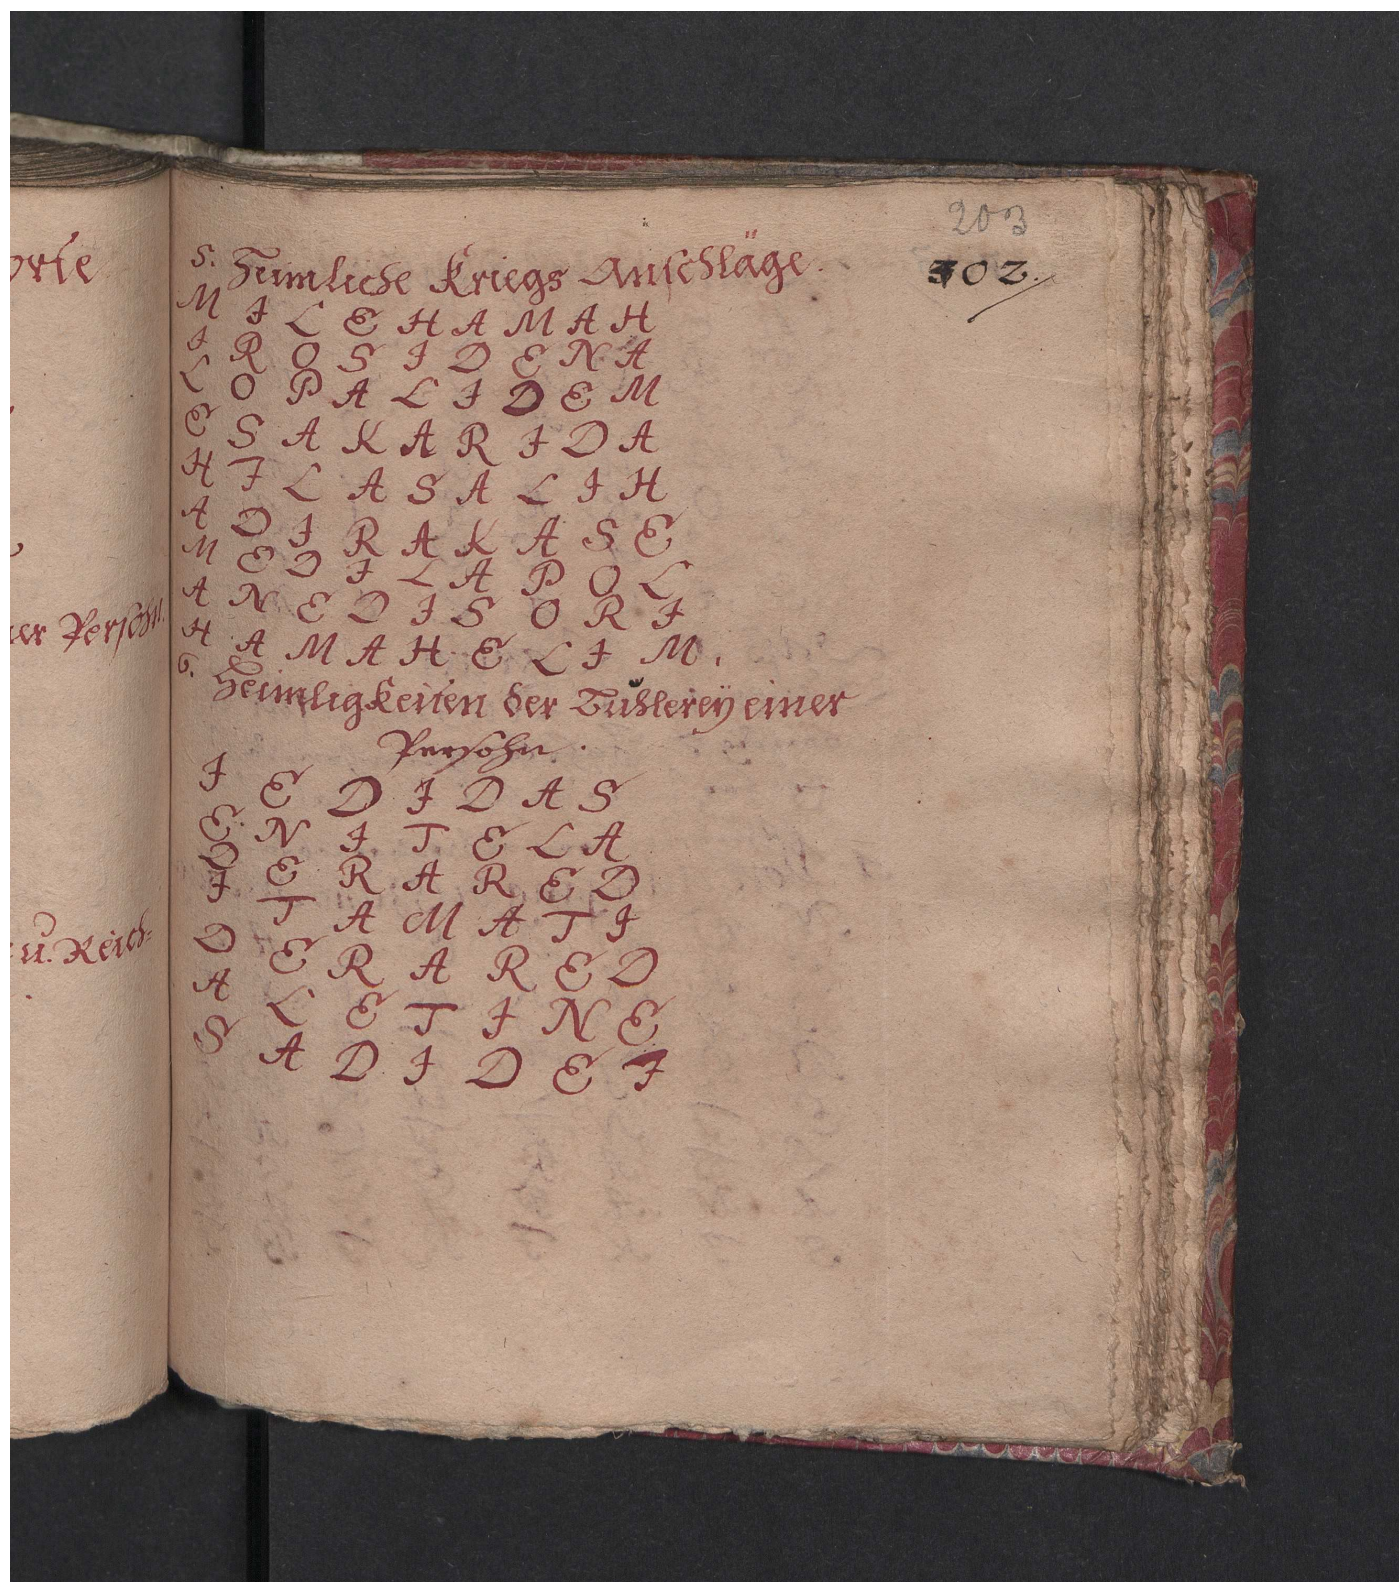 orte
er Persohn.
u. Reich=
203
302.
5. Heimliche Kriegs Anschläge.
M I L E H A M A H
I R O S I D E N A
L O P A L I D E M
E S A K A R I D A
H I L A S A L I H
A D I R A K A S E
M E D I L A P O L
A N E D I S O R I
H A M A H E L I M.
6. Heimligkeiten der Buhlereÿ einer
Persohn.
I E D I D A S
E N I T E L A
D E R A R E D
I T A M A T I
D E R A R E D
A L E T I N E
S A D I D E I